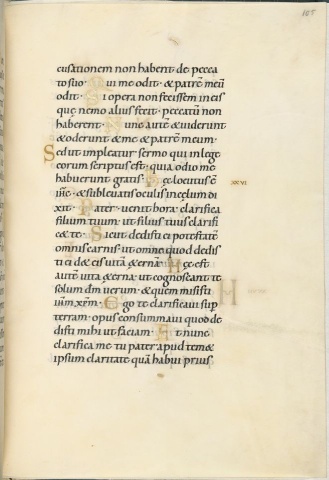 185
cusationem non habent de pecca
to suo · Qui me odit · & patrē meū
odit · Si opera non fecissem in eis
quę nemo alius fecit · peccatū non
haberent · Nunc autē & viderunt
& oderunt & me & patrem meum ·
Sed ut impleatur sermo qui in lege
eorum scriptus est · quia odio me
habuerunt gratis · Hęc locutus ē
iħc · & sublevatis oculis in cęlum di
xit · Pater · venit hora · clarifica
filium tuum · ut filius tuus clarifi
c& te · Sicut dedisti ei potestatē
omnis carnis · ut omne quod dedis
ti ei d& eis vitā ęternā · Hęc est
autē vita ęterna · ut cognoscant te
solum dm̄ verum · & quem misisti
iħm xp̄m · Ego te clarificavi sup
terram · opus consummavi quod de
disti mihi ut faciam · Et nunc
clarifica me tu pater apud tem&
ipsum claritate quā habui prius
XXVI